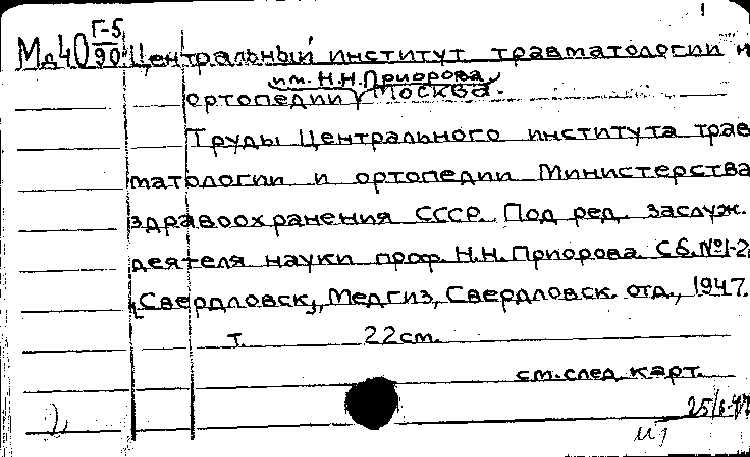 1
Г-5
Мд40 90 Центральный институт травматологии и
им. Н.Н.Приорова
ортопедии Москва.
Труды Центрального института трав
матологии и ортопедии Министерства
здравоохранения СССР. Под ред. заслуж.
деятеля науки проф. Н.Н. Приорова. Сб. №1-2.
[Свердловск], Медгиз, Свердловск. отд., 1947.
т. 22см.
см. след. карт.
25/6-47